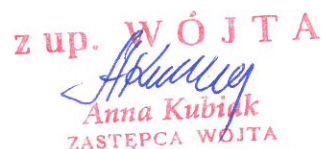 z up. WÓJTA
Anna Kubiak
ZASTĘPCA WÓJTA